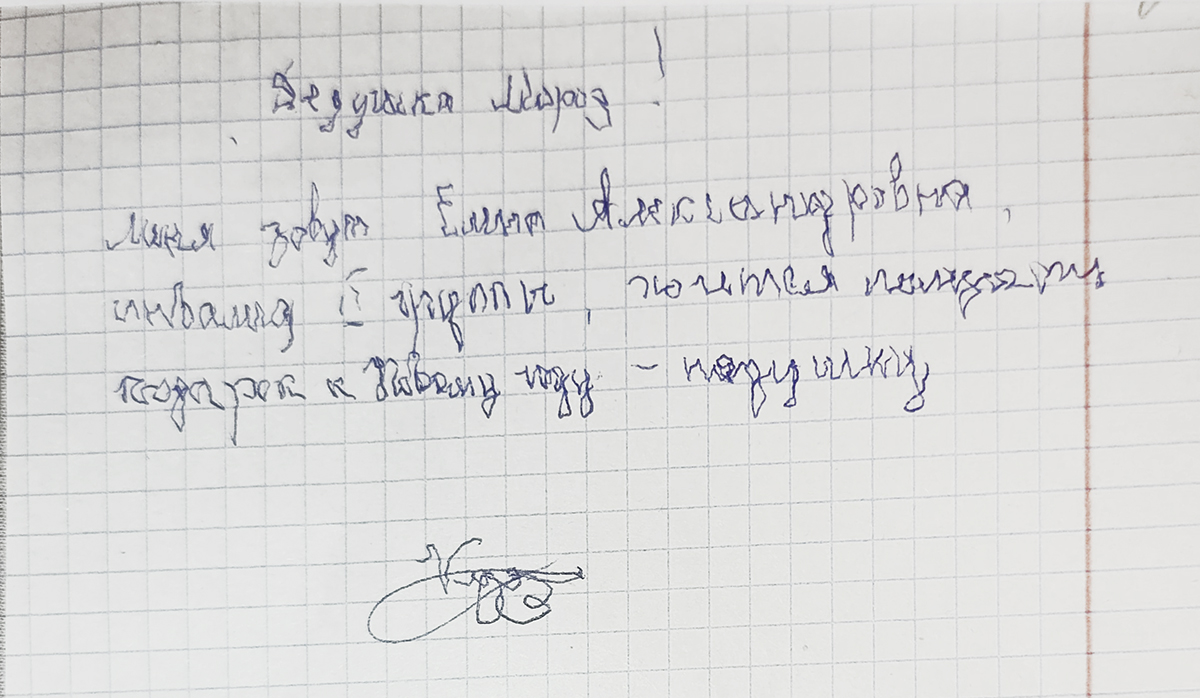 Дедушка Мороз!
Меня зовут Елена Александровна,
инвалид I группы, хочется получить
подарок к Новому году - подушку